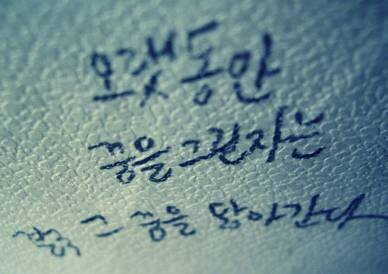 오랫동안
꿈을 그린 자는
그 꿈을 닮아간다